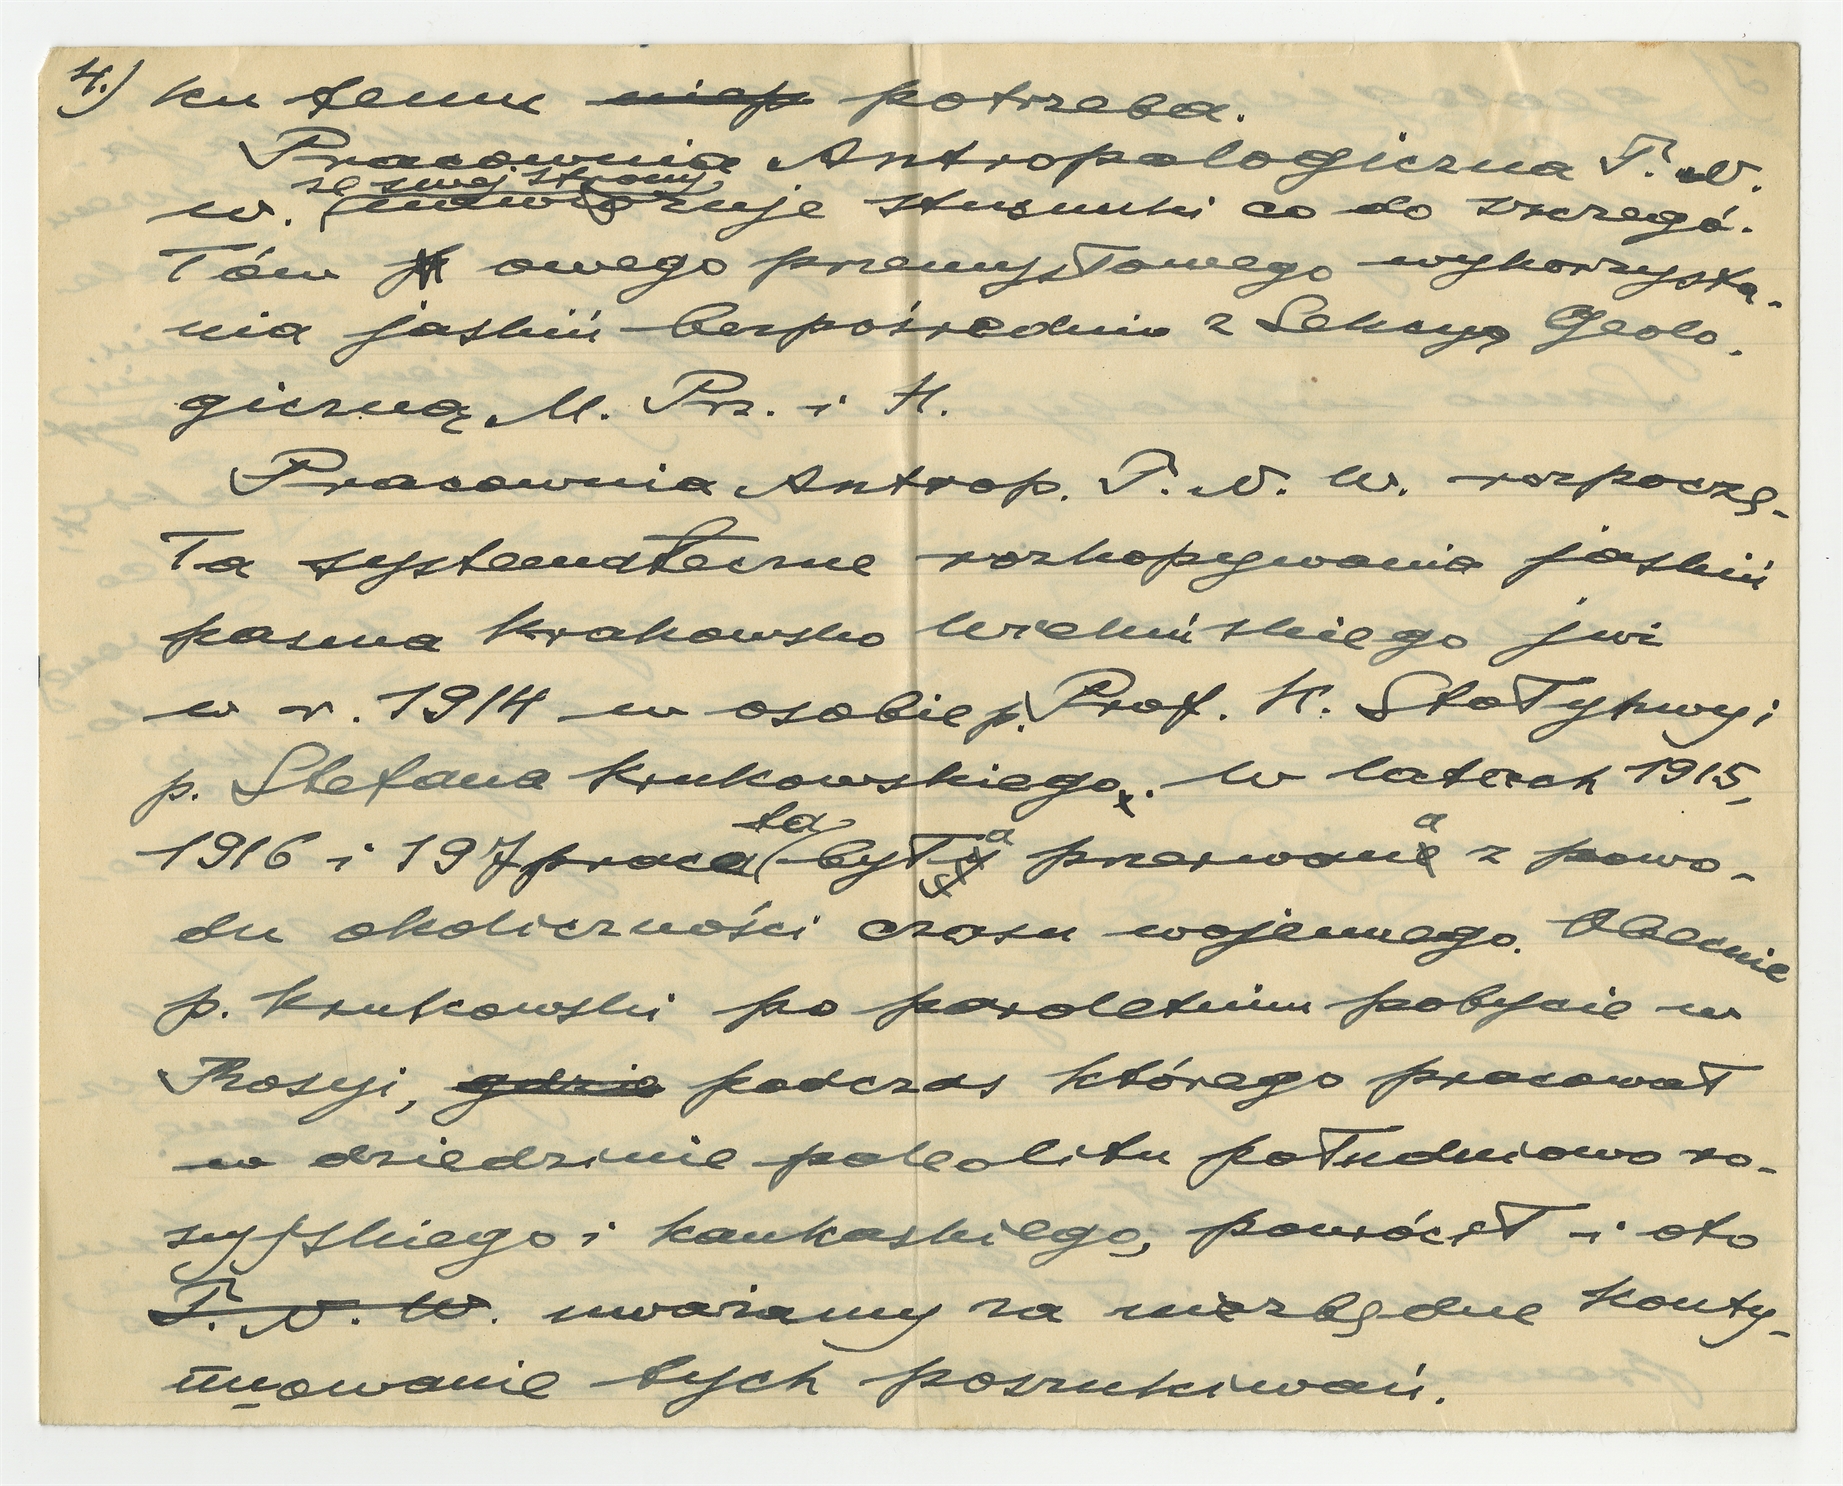 4.) ku temu niep potrzeba.
Pracownia Antropologiczna T. N.
ze swej strony
W. nawiązuje stosunki co do szczegó-
łów owego przemysłowego wykorzysta-
nia jaskiń bezpośrednio z Sekcyą Geolo-
giczną M. Prz. i H.
Pracownia Antrop. T. N. W. rozpoczę-
ła systematyczne rozkopywania jaskiń
pasma Krakowsko Wieluńskiego już
w r. 1914 w osobie p. Prof. K. Stołyhwy i
p. Stefana Krukowskiego. W latach 1915,
ta a a
1916 i 197 praca była przerwana z powo-
du okoliczności czasu wojennego. Obecnie
p. Krukowski po paroletnim pobycie w
Rosyi, gdzie podczas którego pracował
w dziedzinie paleolitu południowo ro-
syjskiego i kaukaskiego, powrócił i oto
T. N. W. uważamy za niezbędne konty-
nuowanie tych poszukiwań.